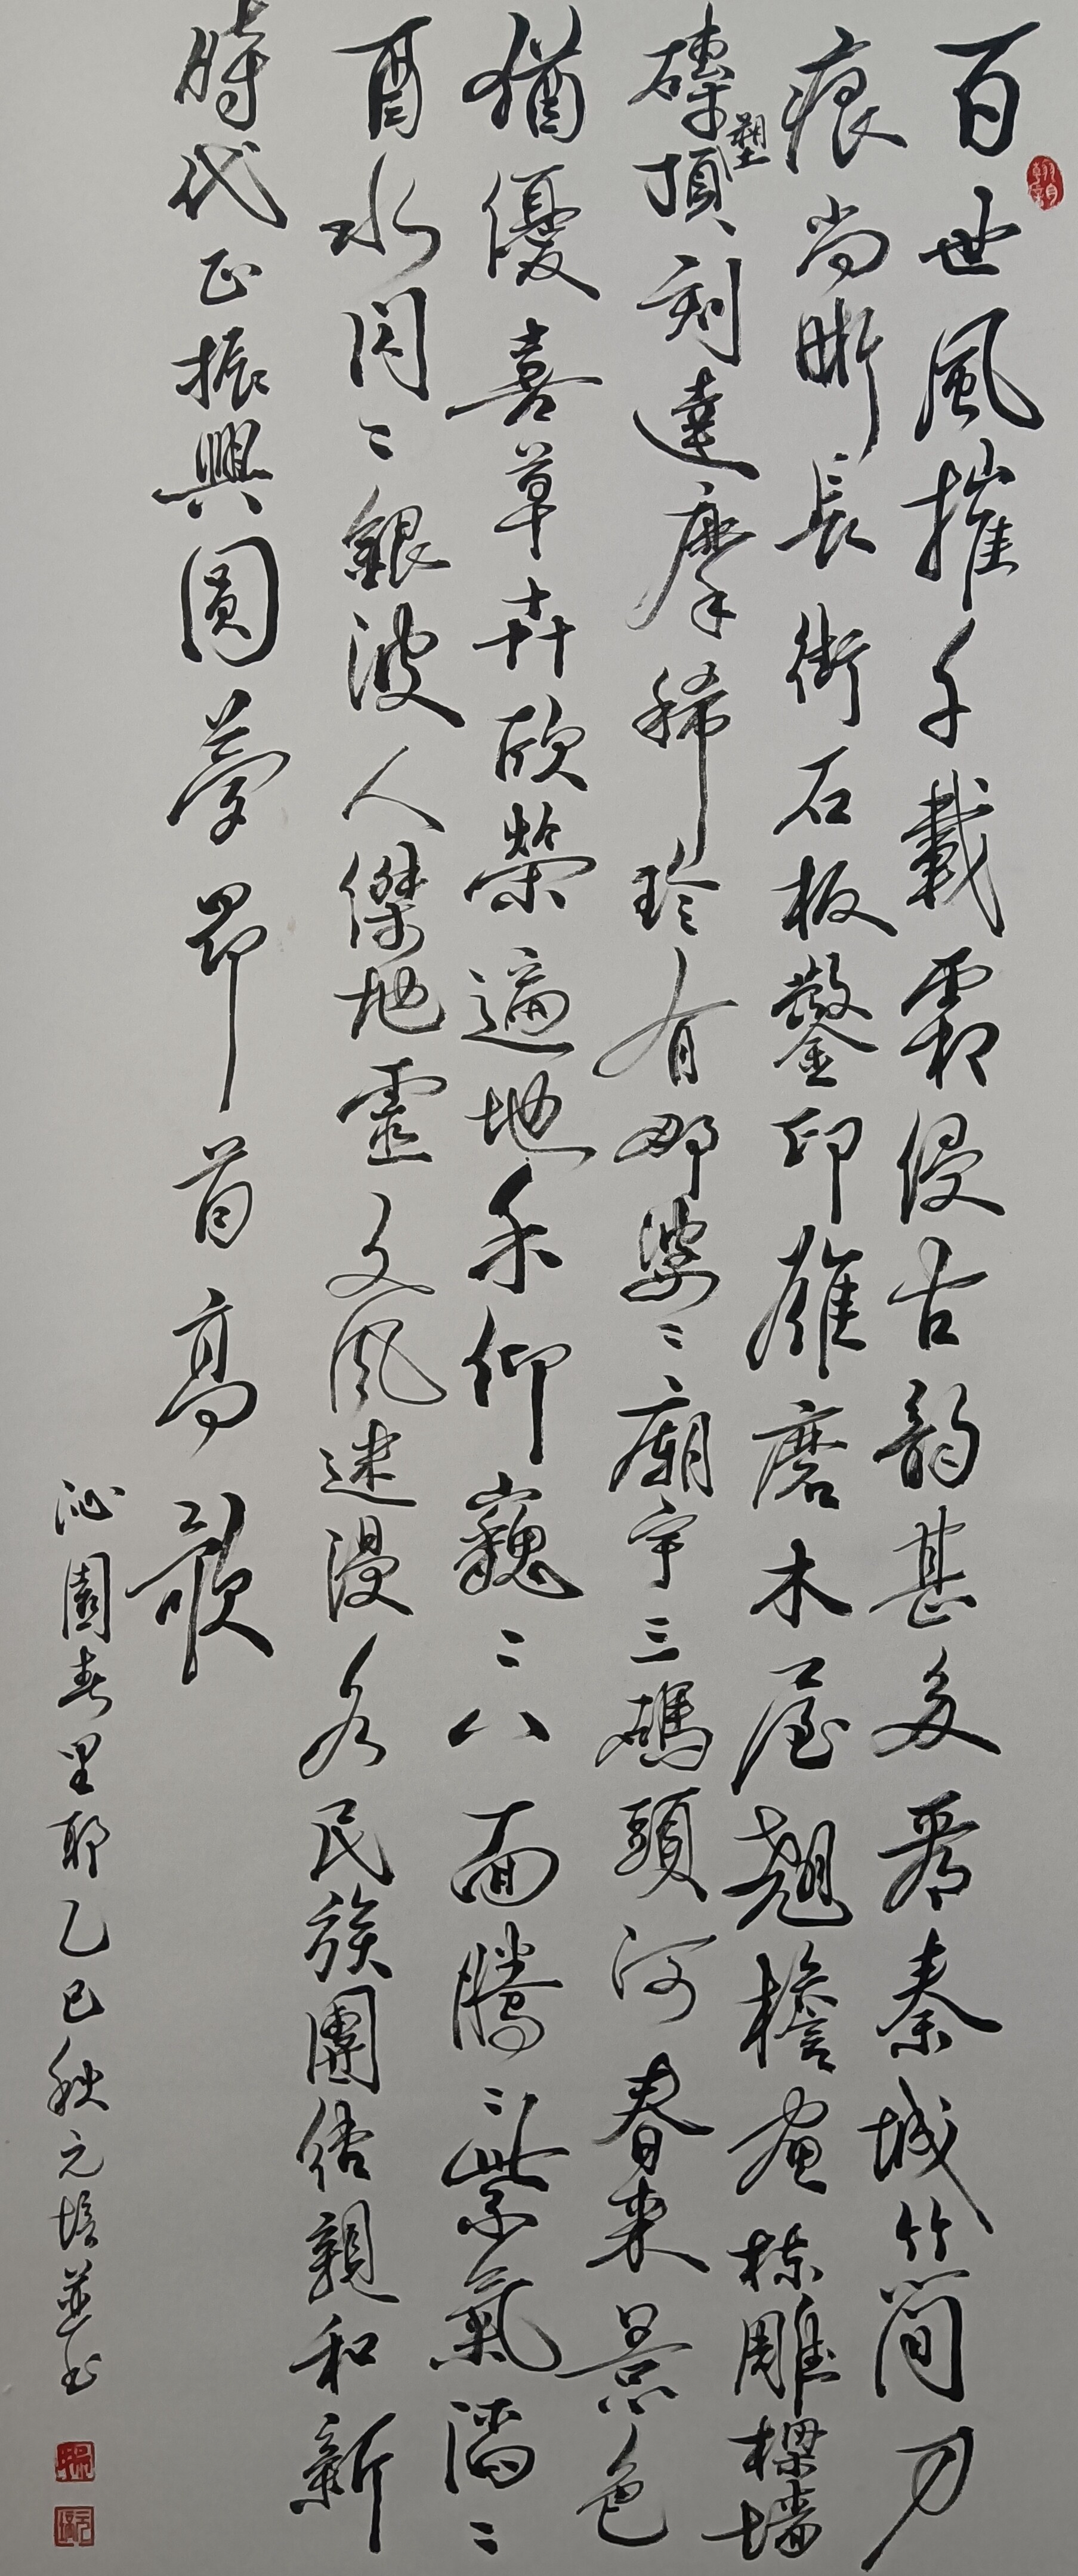 百世風摧千載霜侵古韵甚多看秦城竹簡刀
痕尚晰長街石板鏨印難磨木屋翹檐畫棟雕樑墙
磚塑頂刻達摩稀珍有那婆〻廟宇三碼頭河春來景色
猶優喜草卉欣榮遍地禾仰巍〻八面騰〻紫氣潘〻
酉水閃〻銀波人傑地靈文風迷漫各民族團结親和新
時代正振興圓夢昂首高歌
沁園春里耶乙巳秋元培並书